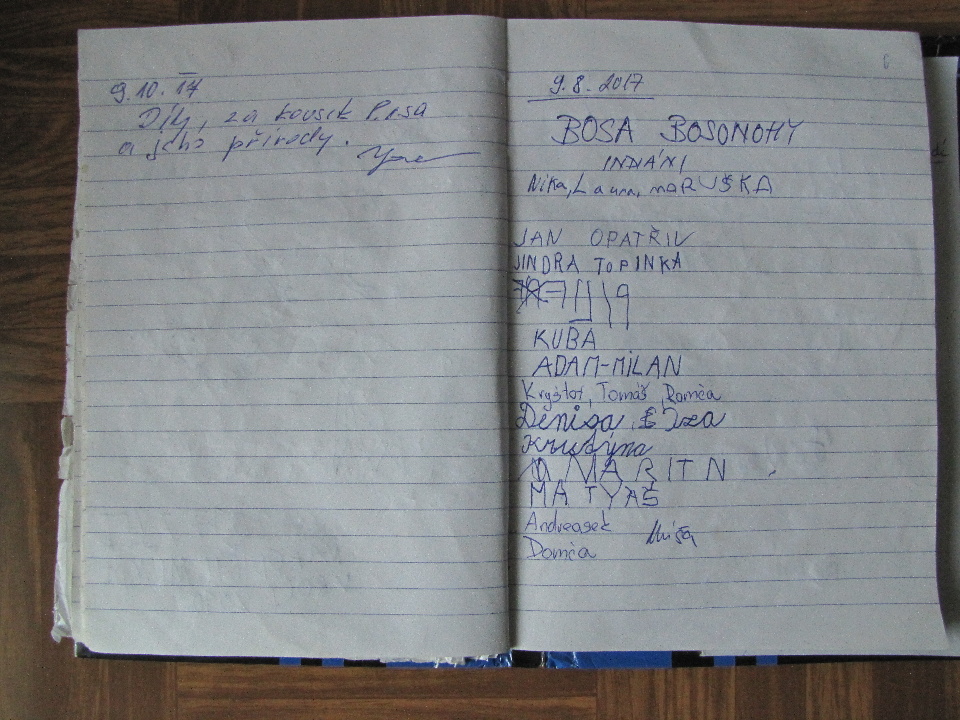 9.10.17
Díky, za kousek
a jeho přírody.
9.8.2017
BOSA BOSONOHY
INDIÁNI
Nika, Laura, MARUŠKA
JAN OPATŘIL
JINDRA TOPINKA
KUBA
ADAM-MILAN
Kryštof, Tomáš, Domča
Denisa, Iza
Kristýna
MARITN
MATYÁŠ
Andreasek
Míša
Domča